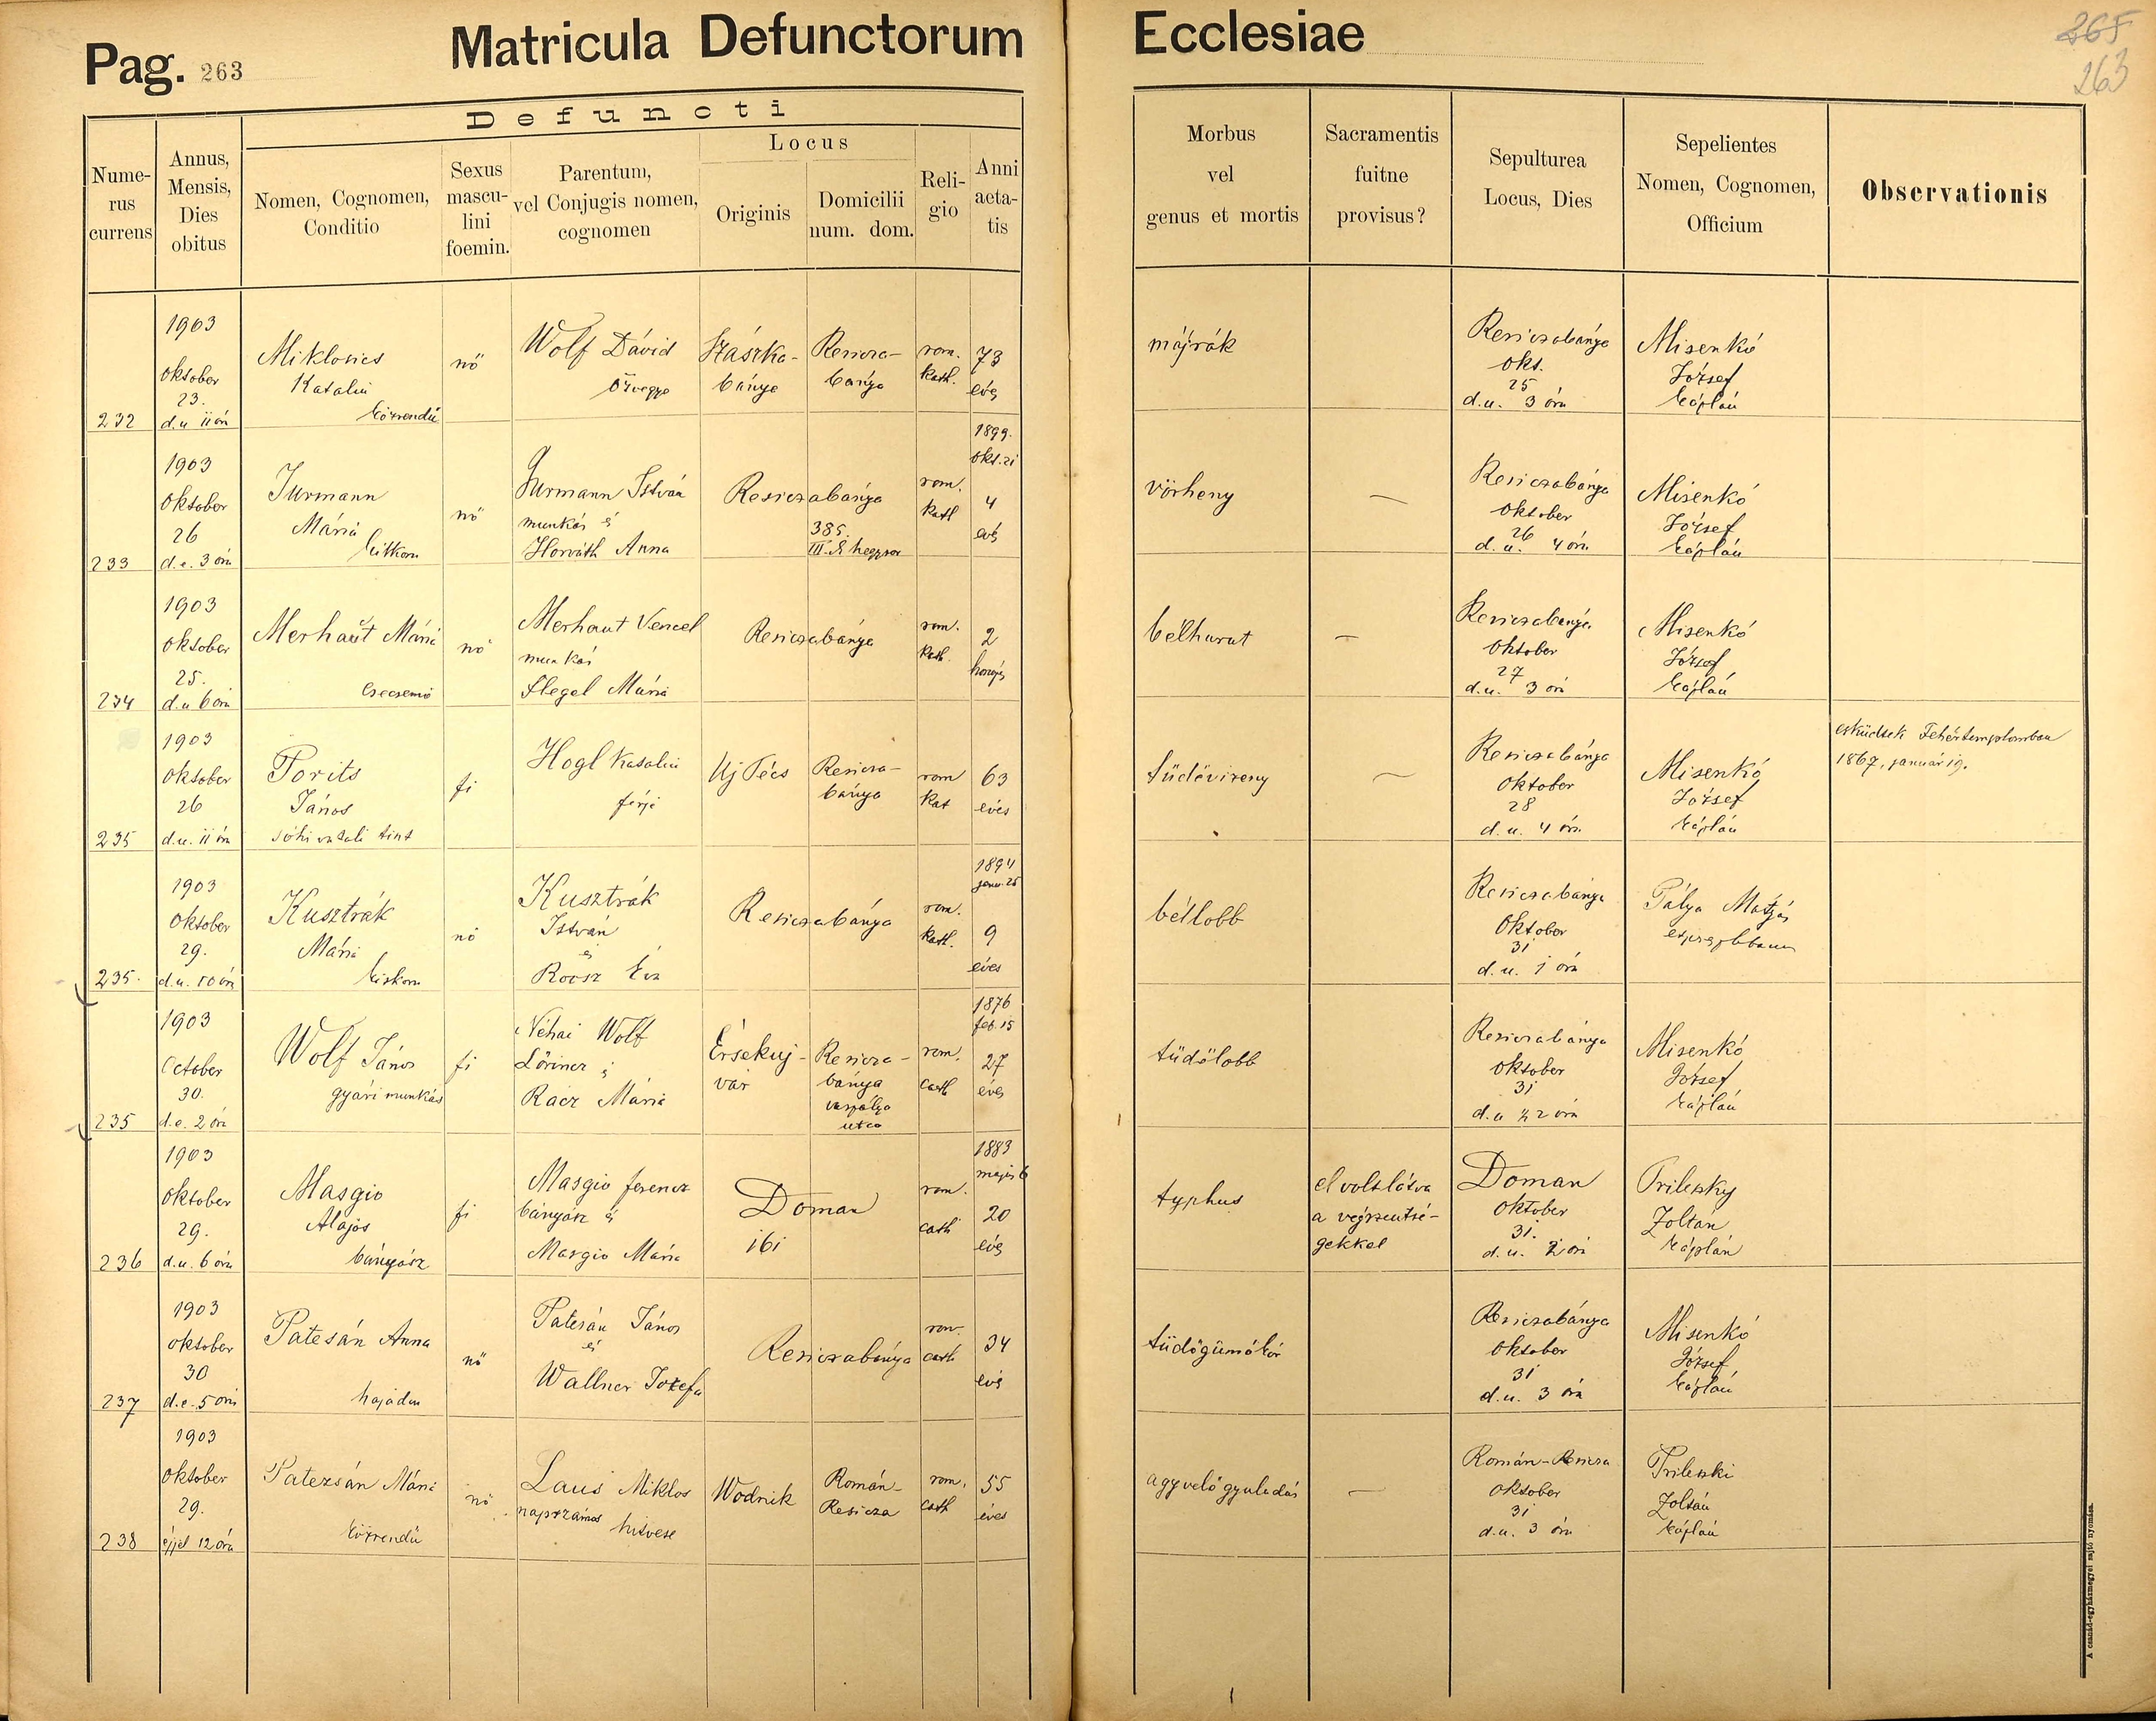 Pag. 263
Matricula Defunctorum
Ecclesiae
265
263
Defuncti
Numerus currens
Annus, Mensis, Dies obitus
Nomen, Cognomen, Conditio
Sexus masculini foemin.
Parentum, vel Conjugis nomen, cognomen
Locus
Originis
Domicilii num. dom.
Religio
Anni aetatis
Morbus vel genus et mortis
Sacramentis fuitne provisus?
Sepulturea Locus, Dies
Sepelientes Nomen, Cognomen, Officium
Observationis
232
1903
oktober
23.
d.u 11 óra
Miklosics
Katalin
közrendü
nő
Wolf Dávid
özvegye
Szászka-
bánya
Resicza-
bánya
rom.
kath.
73
éves
májrák
Resiczabánya
okt.
25
d.u. 3 óra
Misenkó
József
káplán
233
1903
oktober
26
d.e. 3 óra
Jurmann
Mária
kiskoru
nő
Jurmann István
munkás és
Horváth Anna
Resiczabánya
385.
III.
rom.
kath
1899.
okt. 21
4
évs
vörheny
—
Resiczabánya
oktober
26
d.u. 4 óra
Misenkó
József
káplán
234
1903
oktober
25.
d.u 6 óra
Merhaut Mária
csecsemő
nő
Merhaut Vencel
munkás
Slegel Mária
Resiczabánya
rom.
kath.
2
hónapos
bélhurut
—
Resiczabánya
oktober
27
d.u. 3 óra
Misenkó
József
káplán
235
1903
oktober
26
d.u. 11 óra
Porits
János
fi
Hogl Katalin
férje
Uj Pécs
Resicza-
bánya
rom
kat
63
éves
tüdővizeny
—
Resiczabánya
oktober
28
d.u. 4 óra
Misenkó
József
káplán
esküdtek Fehértemplomban
1867. január 19.
235.
1903
oktober
29.
d.u. 10 óra
Kusztrák
Mária
kiskoru
nő
Kusztrák
István
és
Rocsz Éva
Resiczabánya
rom.
kath.
1894
janu. 25
9
éves
béllobb
Resiczabánya
oktober
31
d.u. 1 óra
Pálya Mátyás
235
1903
October
30.
d.e. 2 óra
Wolf János
gyári munkás
fi
Néhai Wolf
Lőrincz és
Rácz Mária
Érsekuj-
vár
Resicza-
bánya
utca
rom.
cath
1876
feb. 15
27
éves
tüdőlobb
Resiczabánya
oktober
31
d.u ½ 2 óra
Misenkó
József
káplán
236
1903
oktober
29.
d.u. 6 óra
Masgio
Alajos
bányász
fi
Masgio ferencz
bányász és
Masgio Mária
Doman
ibi
rom.
cath
1883
május 6
20
éves
typhus
el volt látva
a végszentsé-
gekkel
Doman
oktober
31.
d.u. 2 óra
Prileszky
Zoltan
káplán
237
1903
oktober
30
d.e. 5 óra
Patesán Anna
hajadon
nő
Patesán János
és
Wallner Jozefa
Resiczabánya
rom.
cath
34
évs
tüdőgümőkór
Resiczabánya
oktober
31
d.u. 3 óra
Misenkó
József
káplán
238
1903
oktober
29.
éjjel 12 óra
Patezsán Mária
közrendü
nő
Laus Miklos
napszámos hitvese
Wodnik
Román-
Resicza
rom.
cath
55
éves
agyvelőgyuladás
—
Román-Resicza
oktober
31
d.u. 3 óra
Prileszki
Zoltán
káplán
A csanád-egyházmegyei sajtó nyomása.